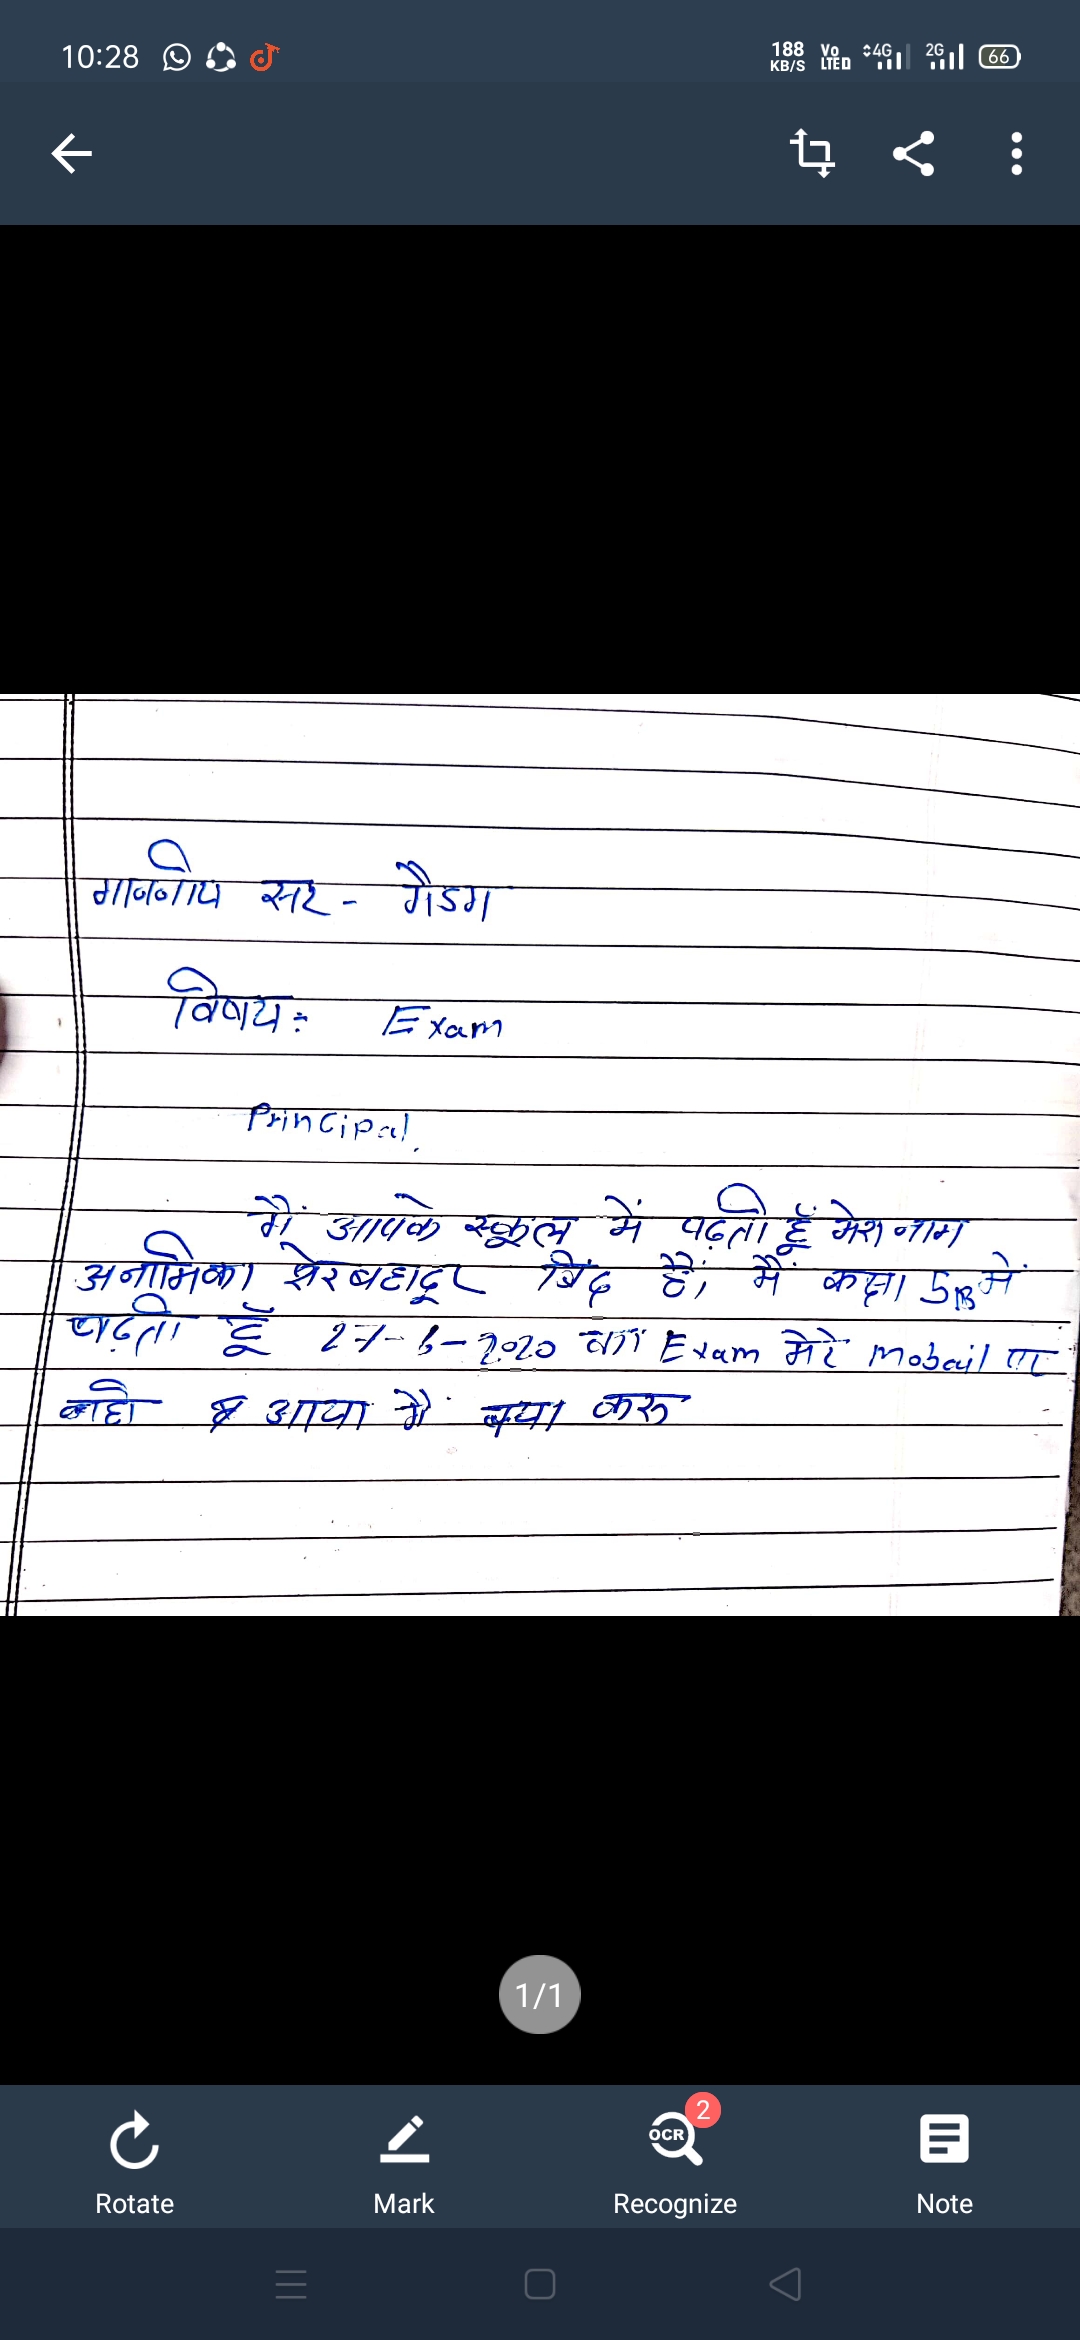 10:28
188 KB/S Vo LTE 4G 2G 66
माननीय सर - मैडम
विषय: Exam
Principal.
मैं आपके स्कूल में पढ़ती हूँ मेरा नाम
अनामिका शेरबहादूर बिंद है, मैं कक्षा 5B में
पढ़ती हूँ 27-6-2020 का Exam मेरे Mobail पर
नही आया मैं क्या करू
1/1
OCR 2
Rotate Mark Recognize Note